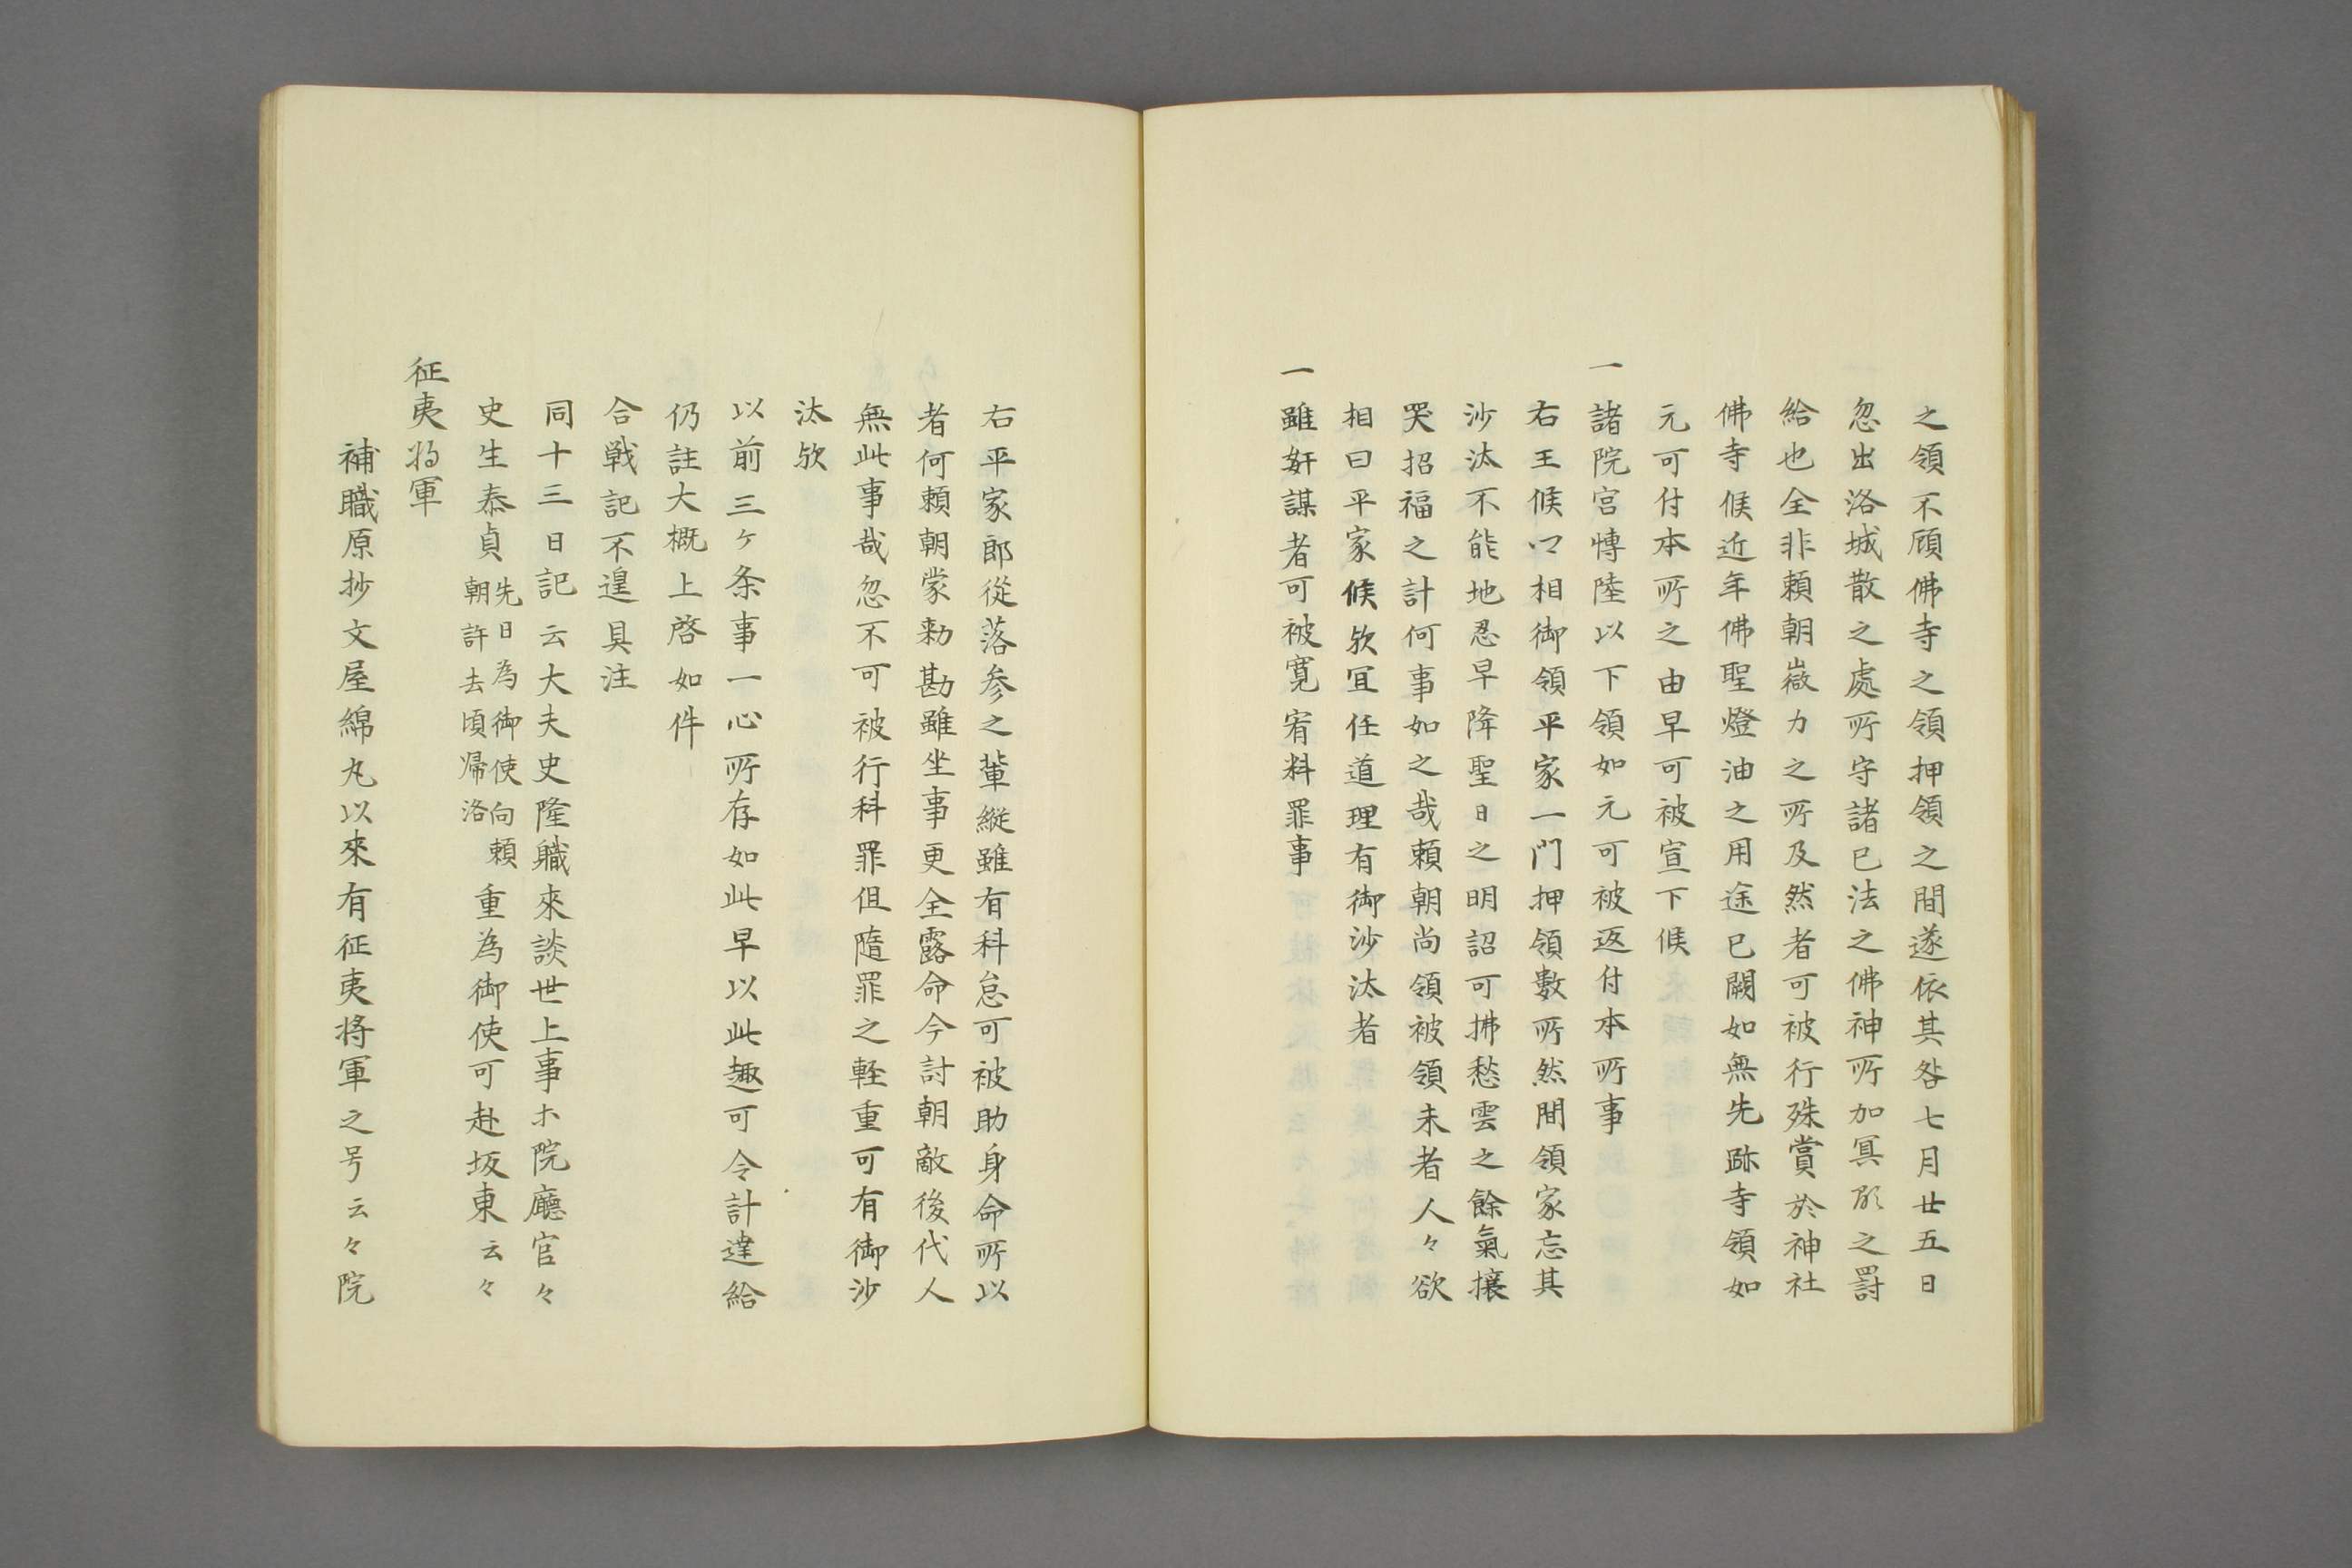 之領不顧佛寺之領押領之間遂依其咎七月廿五日
忽出洛城散之處所守諸已法之佛神所加冥顕之罸
給也全非頼朝嶶力之所及然者可被行殊賞於神社
佛寺候近年佛聖燈油之用途已闕如無先跡寺領如
元可付本所之由早可被宣下候
一諸院宮愽陸以下領如元可被返付本所事
右王候口相御領平家一門押領數所然間領家忘其
沙汰不能地忍早降聖日之明詔可拂愁雲之餘氣攘
哭招福之計何事如之哉頼朝尚領被領未者人々欲
相曰平家候欤冝任道理有御沙汰者
一雖奸謀者可被寛宥料罪事
右平家郎從落参之輩縱雖有科怠可被助身命所以
者何頼朝蒙勅勘雖坐事更全露命今討朝敵後代人
無此事哉忽不可被行科罪但隨罪之軽重可有御沙
汰欤
以前三ヶ条事一心所存如此早以此趣可令計達給
仍註大概上啓如件
合戦記不遑具注
同十三日記云大夫史隆職來談世上事ホ院廳官々
史生泰貞先日為御使向頼朝許去頃帰洛重為御使可赴坂東云々
征夷将軍
補職原抄文屋綿丸以來有征夷将軍之号云々院